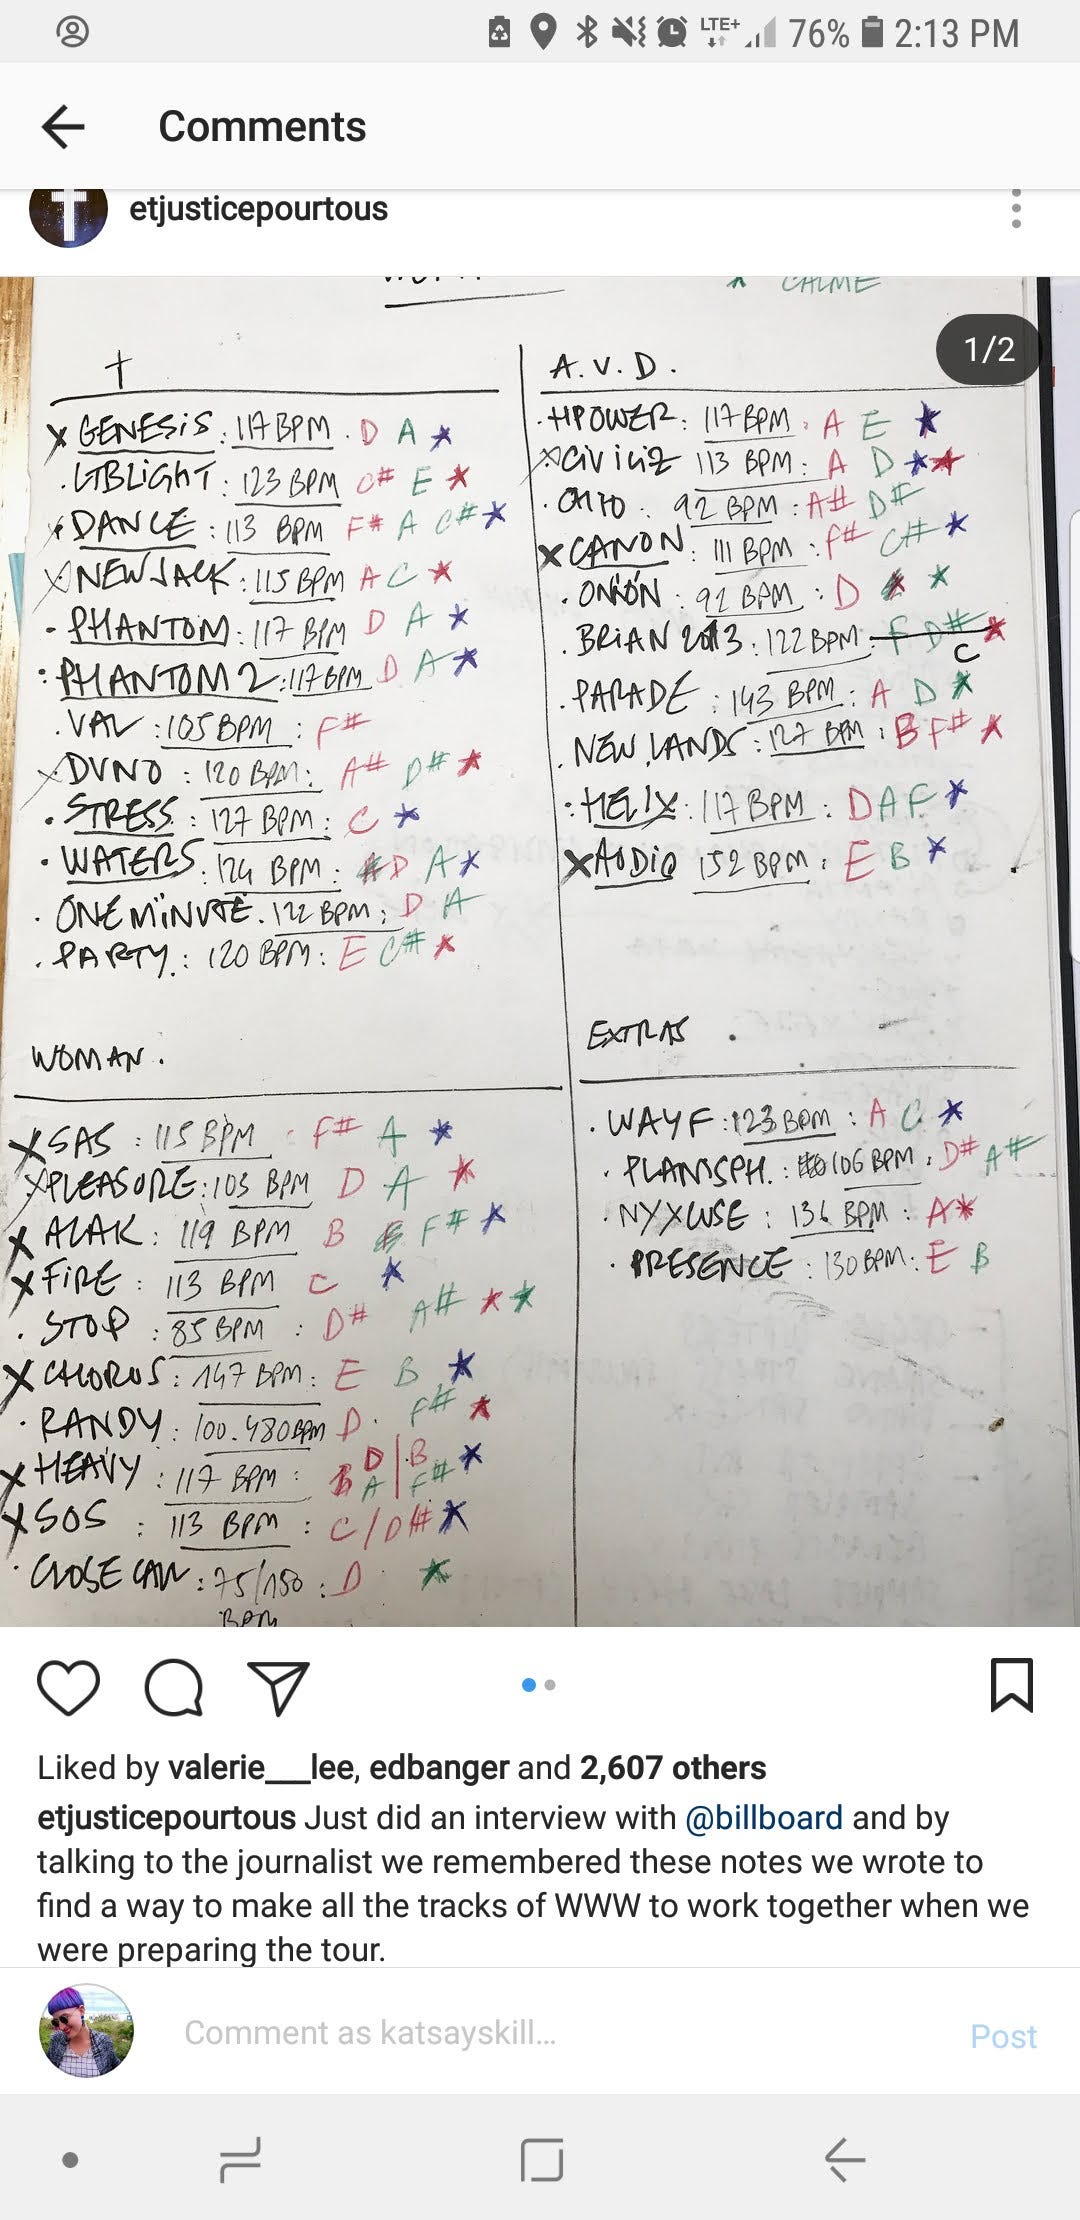 LTE+ 76% 2:13 PM
Comments
etjusticepourtous
CALME
1/2
†
GENESIS: 117 BPM . D A *
. LTBLIGHT: 123 BPM C# E *
x DANCE: 113 BPM F# A C# *
x NEWJACK: 115 BPM A C *
. PHANTOM: 117 BPM D A *
: PHANTOM 2: 117 BPM D A *
. VAL: 105 BPM: F#
x DVNO: 120 BPM: A# D# *
. STRESS: 127 BPM: C *
. WATERS: 124 BPM: D A *
. ONE MINUTE. 122 BPM: D A
. PARTY: 120 BPM: E C# *
A.V.D.
. HPOWER: 117 BPM. A E *
x CIVILIZ 113 BPM: A D * *
. OHIO: 92 BPM: A# D#
x CANON: 111 BPM: F# C# *
. ONION: 92 BPM: D * *
. BRIAN 2013: 122 BPM: F D# * C
. PARADE: 143 BPM: A D *
. NEW LANDS: 127 BPM: B F# *
: HELIX: 117 BPM: D A F *
x AUDIO 152 BPM: E B *
WOMAN.
x SAS: 115 BPM F# A *
x PLEASURE: 103 BPM D A *
x ALAK: 119 BPM B F# *
x FIRE: 113 BPM C *
. STOP: 85 BPM: D# A# * *
x CHORUS: 147 BPM: E B *
. RANDY: 100.480 BPM D. F# *
x HEAVY: 117 BPM: D A | B F# *
x SOS: 113 BPM: C/D# *
. CLOSE CALL: 75/150: D *
BPM
EXTRAS .
. WAYF: 123 BPM: A C *
. PLANISPH.: 106 BPM. D# A#
. NYXWSE: 136 BPM: A *
. PRESENCE: 130 BPM: E B
Liked by valerie___lee, edbanger and 2,607 others
etjusticepourtous Just did an interview with @billboard and by
talking to the journalist we remembered these notes we wrote to
find a way to make all the tracks of WWW to work together when we
were preparing the tour.
Comment as katsayskill... Post